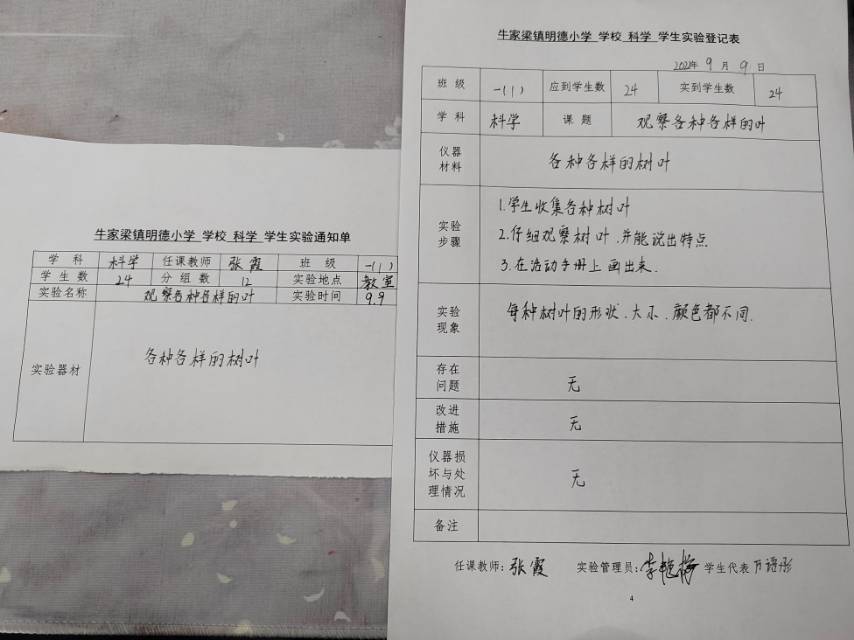 牛家梁镇明德小学 学校 科学 学生实验通知单
学科 科学 任课教师 张霞 班级 一(1)
学生数 24 分组数 12 实验地点 教室
实验名称 观察各种各样的叶 实验时间 9.9
实验器材 各种各样的树叶
牛家梁镇明德小学 学校 科学 学生实验登记表
2021年 9月 9日
班级 一(1) 应到学生数 24 实到学生数 24
学科 科学 课题 观察各种各样的叶
仪器材料 各种各样的树叶
实验步骤
1.学生收集各种树叶
2.仔细观察树叶,并能说出特点
3.在活动手册上画出来.
实验现象 每种树叶的形状、大小、颜色都不同.
存在问题 无
改进措施 无
仪器损坏与处理情况 无
备注
任课教师:张霞 实验管理员:李艳梅 学生代表
4